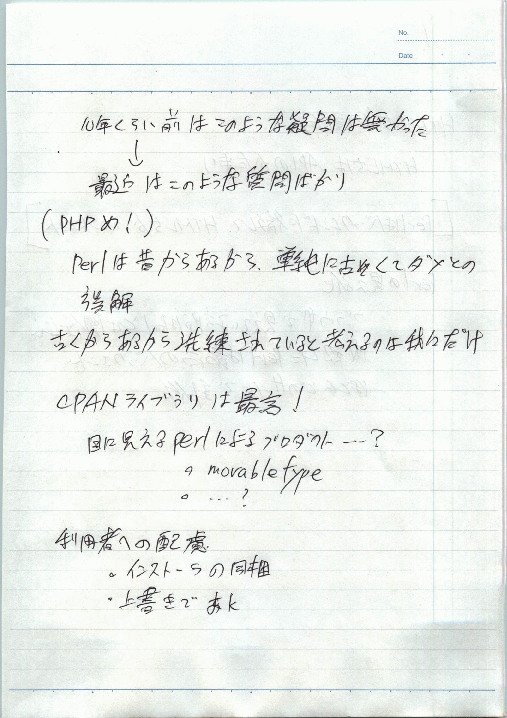 No.
Date
10年くらい前はこのような疑問は無かった
↓
最近はこのような質問ばかり
(PHPめ!)
Perlは昔からあるから、単純に古くてダメとの
誤解
古くからあるから洗練されていると考えるのは我々だけ
CPANライブラリは最高!
目に見えるPerlによるプロダクト…?
。movabletype
。…?
利用者への配慮
。インストーラの同梱
・上書きでおk